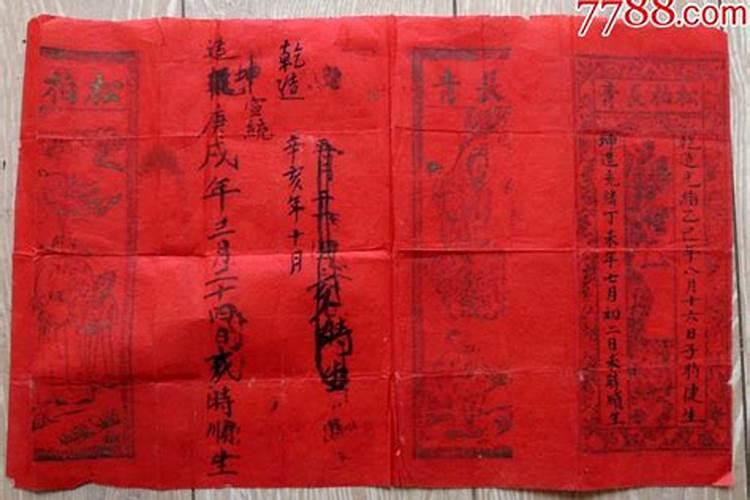 7788.com
松柏長青
乾造光緒乙巳年八月十六日子時健生
坤造光緒丁未年七月初二日未時順生
長青
時生
乾造
辛亥年十月
坤宣統
造庚戌年三月二十四日戌時順生
松柏